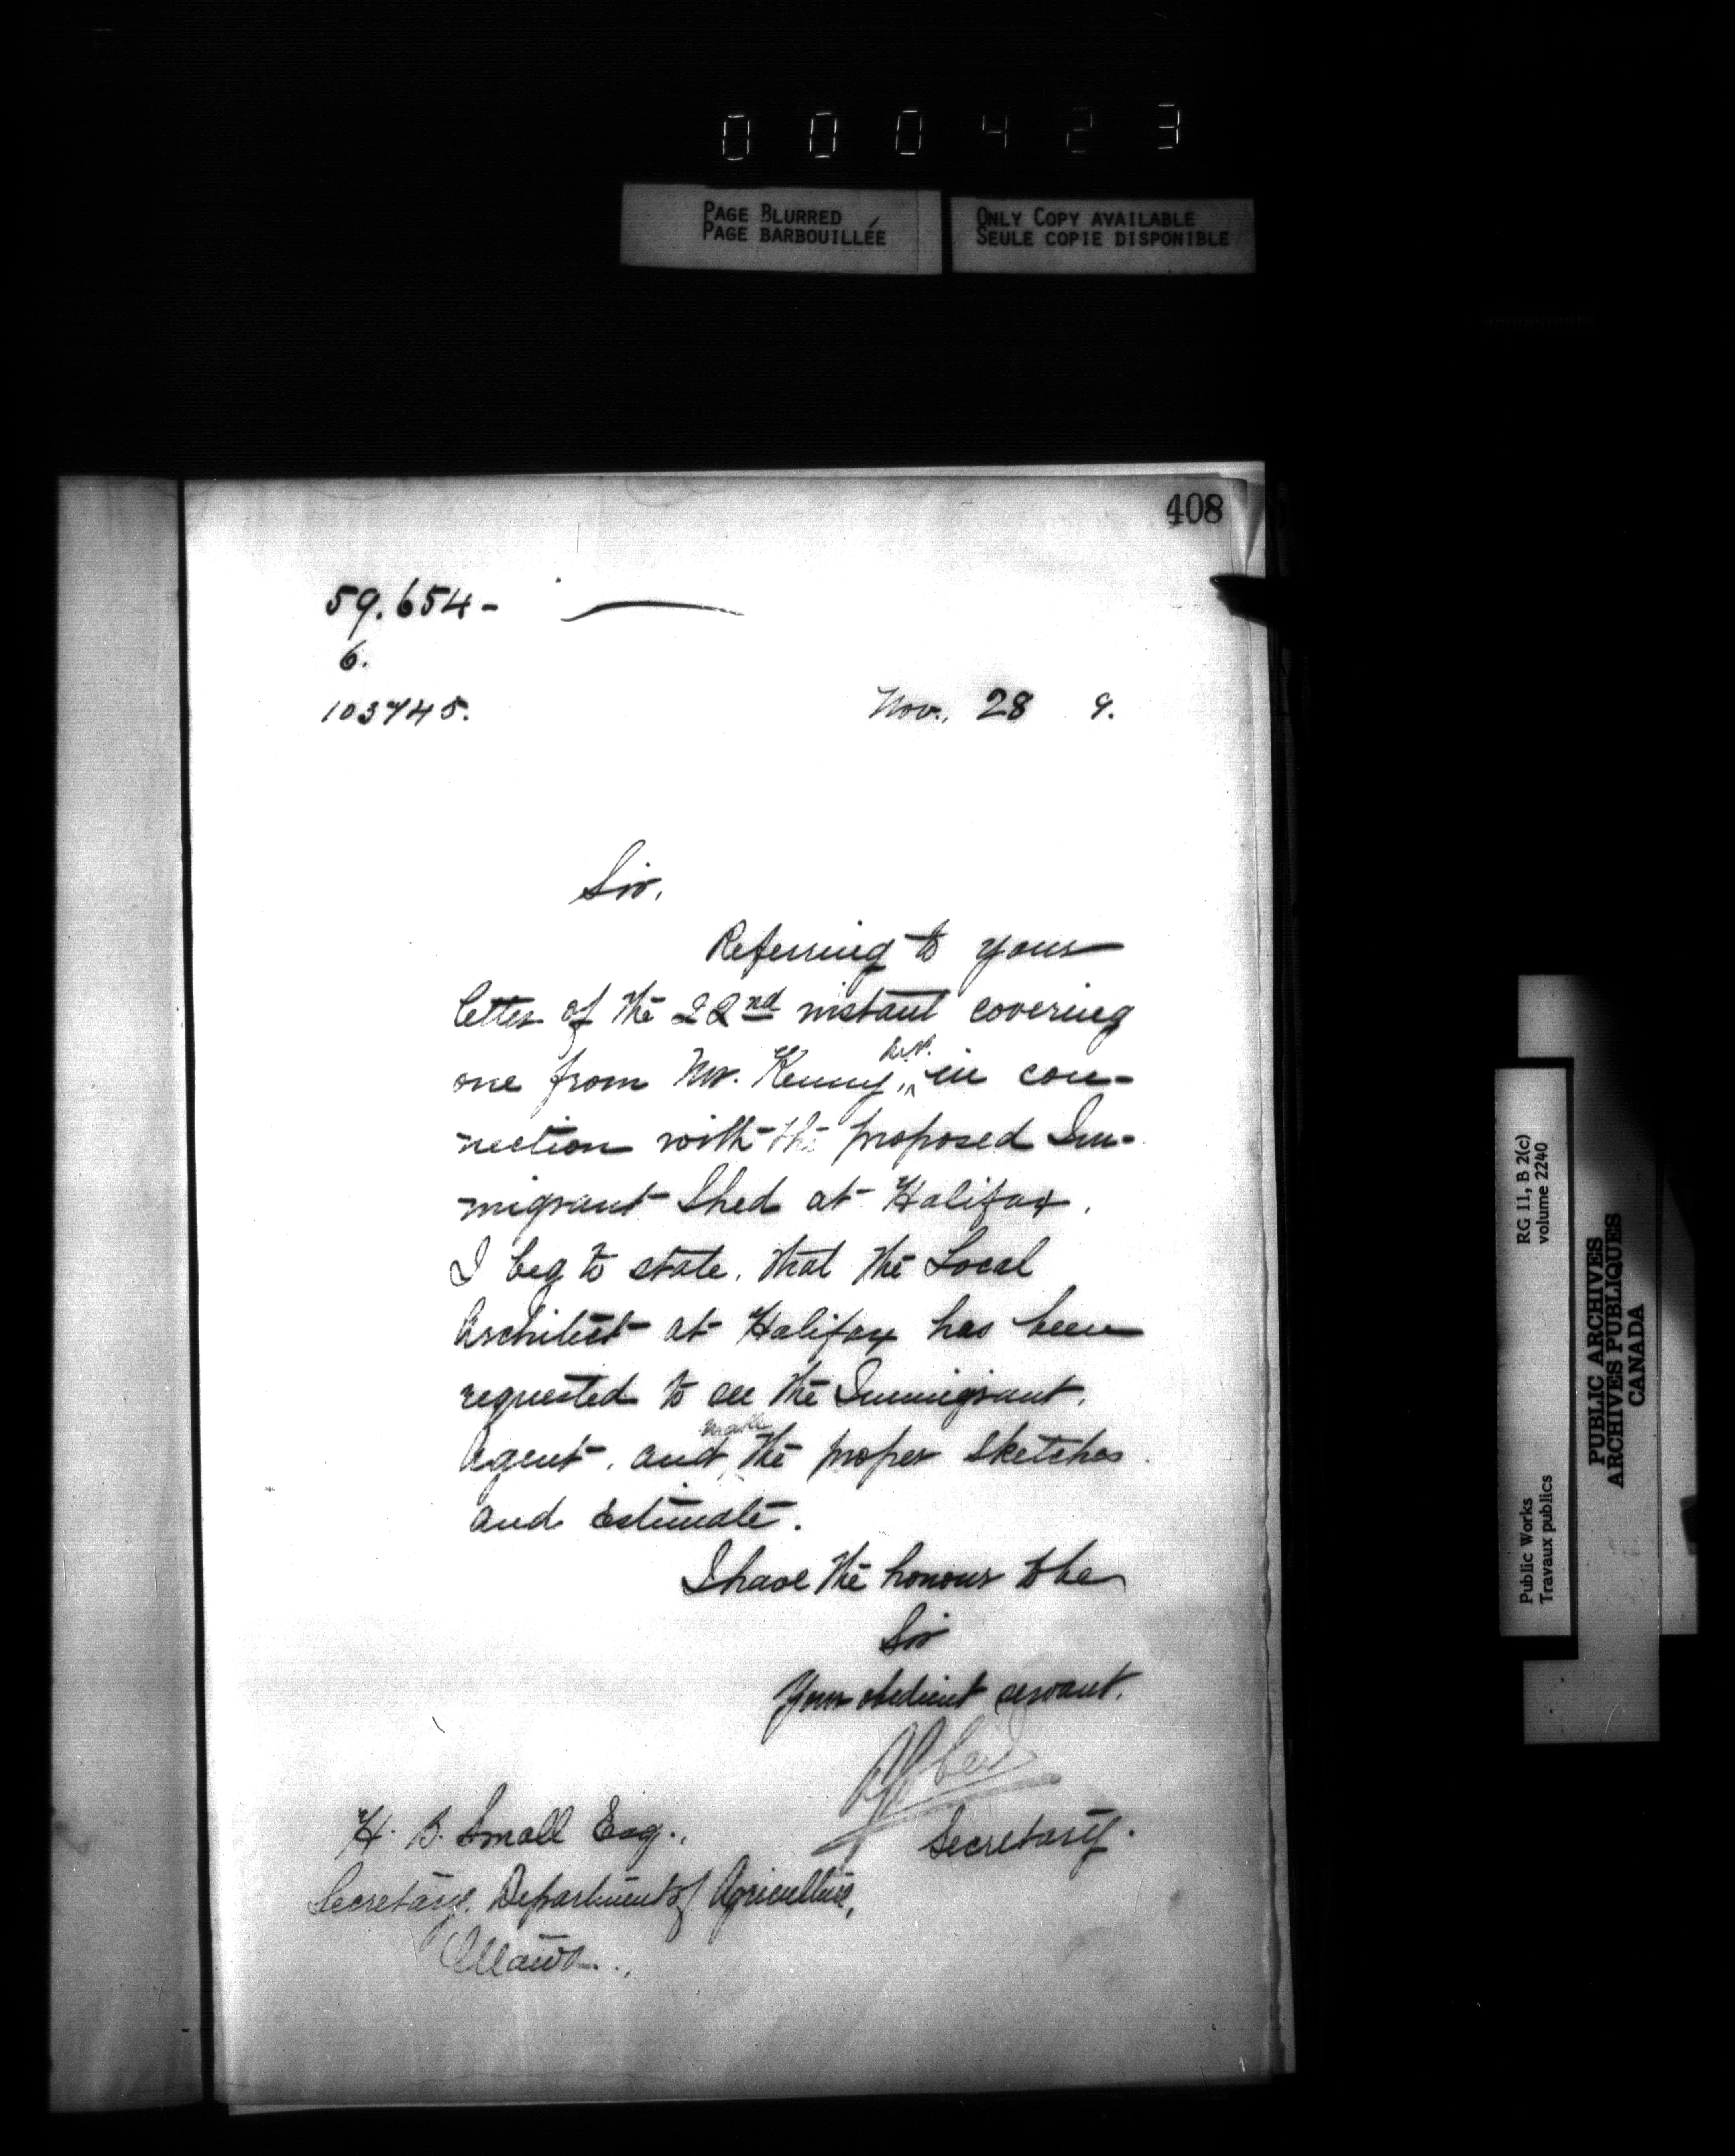 000423
PAGE BLURRED
PAGE BARBOUILLÉE
ONLY COPY AVAILABLE
SEULE COPIE DISPONIBLE
408
59.654-
6.
103745.
Nov. 28 9.
Sir,
Referring to your
letter of the 22nd instant covering
one from Mr. Kenny, in con-
nection with the proposed Im-
migrant Shed at Halifax,
I beg to state, that the Local
Architect at Halifax has been
requested to see the Immigrant,
Agent, and make the proper sketches
and Estimate.
I have the honour to be
Sir
Your obedient servant,
Secretary.
H. B. Small Esq.,
Secretary, Department of Agriculture,
Ottawa.
RG 11, B 2(c)
volume 2240
Public Works
Travaux publics
PUBLIC ARCHIVES
ARCHIVES PUBLIQUES
CANADA